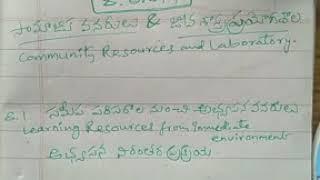 సామాజిక వనరులు & జీవ శాస్త్ర ప్రయోగశాల
Community Resources and Laboratory.
8.1. సమీప పరిసరాల నుంచి అభ్యసన వనరులు
Learning Resources from immediate
environment
అభ్యసన నిరంతర ప్రక్రియ.